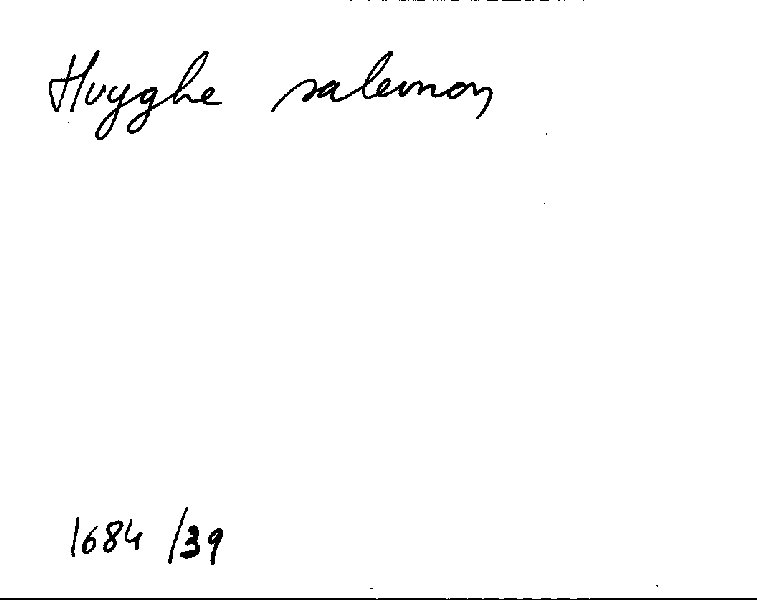 Huyghe salemon
1684 /39